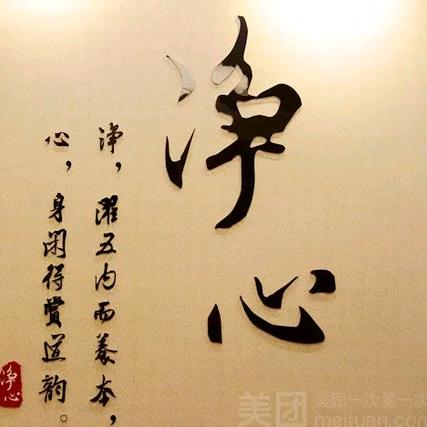 净心
净，濯五内而养本，
心，身闲得赏道韵。
净心
美团
美团一次第一次
meituan.com